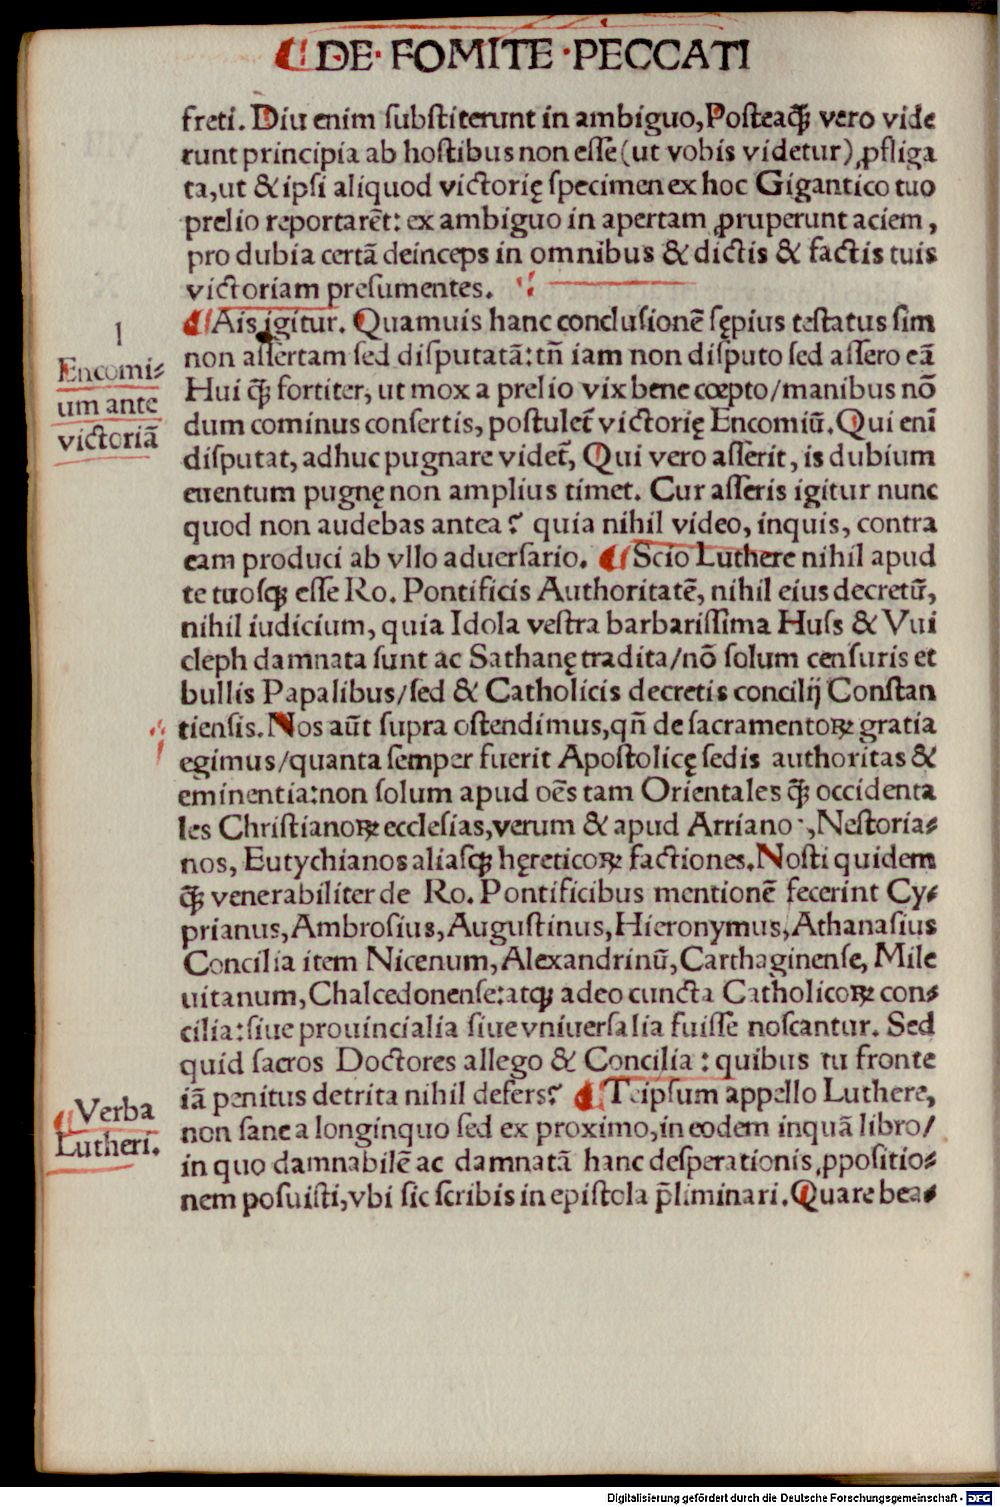 ¶ DE· FOMITE ·PECCATI
freti. Diu enim ſubſtiterunt in ambiguo, Poſteaqꝫ vero vide
runt principia ab hoſtibus non eſſe (ut vobis videtur) ꝓfliga
ta, ut & ipſi aliquod victorię ſpecimen ex hoc Gigantico tuo
prelio reportarēt: ex ambiguo in apertam ꝓruperunt aciem,
pro dubia certā deinceps in omnibus & dictis & factis tuis
victoriam preſumentes.
¶ Ais igitur. Quamuis hanc concluſionē ſępius teſtatus ſim
non aſſertam ſed diſputatā: tñ iam non diſputo ſed aſſero eā
Hui qꝫ fortiter, ut mox a prelio vix bene cœpto/manibus nō
dum cominus conſertis, poſtulet̃ victorię Encomiū. Qui enī
diſputat, adhuc pugnare videt̃, Qui vero aſſerit, is dubium
euentum pugnę non amplius timet. Cur aſſeris igitur nunc
quod non audebas antea? quia nihil video, inquis, contra
eam produci ab vllo aduerſario. ¶ Scio Luthere nihil apud
te tuoſqꝫ eſſe Ro. Pontificis Authoritatē, nihil eius decretū,
nihil iudicium, quia Idola veſtra barbariſſima Huſs & Vui
cleph damnata ſunt ac Sathanę tradita/nō ſolum cenſuris et
bullis Papalibus/ſed & Catholicis decretis concilij Conſtan
tienſis. Nos aūt ſupra oſtendimus, qñ de ſacramentoꝝ gratia
egimus/quanta ſemper fuerit Apoſtolicę ſedis authoritas &
eminentia: non ſolum apud oēs tam Orientales qꝫ occidenta
les Chriſtianoꝝ eccleſias, verum & apud Arriano·, Neſtoria⸗
nos, Eutychianos aliaſqꝫ hęreticoꝝ factiones. Noſti quidem
qꝫ venerabiliter de Ro. Pontificibus mentionē fecerint Cy⸗
prianus, Ambroſius, Auguſtinus, Hieronymus, Athanaſius
Concilia item Nicenum, Alexandrinū, Carthaginenſe, Mile
uitanum, Chalcedonenſe: atqꝫ adeo cuncta Catholicoꝝ con⸗
cilia: ſiue prouincialia ſiue vniuerſalia fuiſſe noſcantur. Sed
quid ſacros Doctores allego & Concilia: quibus tu fronte
iā penitus detrita nihil defers? ¶ Teipſum appello Luthere,
non ſane a longinquo ſed ex proximo, in eodem inquā libro/
in quo damnabilē ac damnatā hanc deſperationis ꝓpoſitio⸗
nem poſuiſti, vbi ſic ſcribis in epiſtola p̄liminari. Quare bea⸗
1
Encomi⸗
um ante
victoriā
Verba
Lutheri.
Digitalisierung gefördert durch die Deutsche Forschungsgemeinschaft - DFG